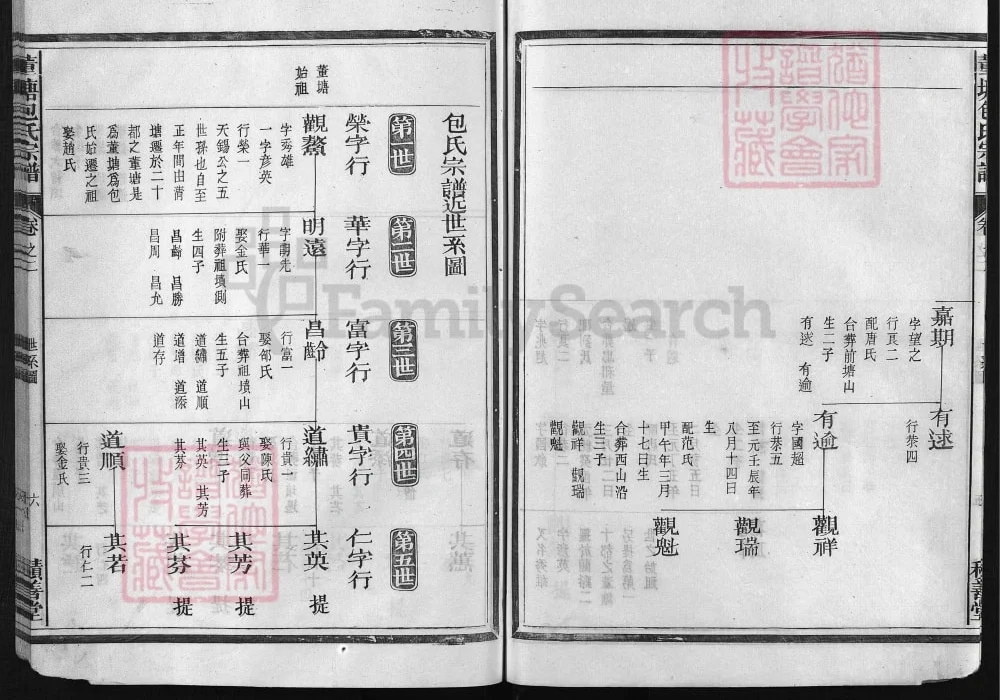 嘉期
字望之
行良二
配唐氏
台葬前塘山
生二子
有逑 有逾
有逑
行恭四
有逾
字國超
行恭五
至元壬辰年
八月十四日
生
配范氏
甲午年三月
十七日生
合葬西山沿
生三子
觀祥 觀瑞
觀魁
觀祥
觀瑞
觀魁
包氏宗譜近世系圖
第一世
榮字行
董塘
始祖
觀鰲
字秀雄
一字彥英
行榮一
天錫公之五
世孫也自至
正年間由淸
塘遷於二十
都之董塘是
爲董塘爲包
氏始遷之祖
娶趙氏
第二世
華字行
明遠
行華一
娶金氏
附葬祖墳側
生四子
昌齡 昌勝
昌周 昌允
第三世
富字行
昌齡
行富一
娶邵氏
合葬祖墳山
生五子
道繡 道順
道增 道添
道存
第四世
貴字行
道繡
行貴一
娶陳氏
與父同葬
生三子
其英 其芳
其芬
道順
行貴三
娶金氏
第五世
仁字行
其英 提
其芳 提
其芬 提
其若
行仁二
董塘包氏宗譜
卷之二
世系圖
六
積善堂
FamilySearch